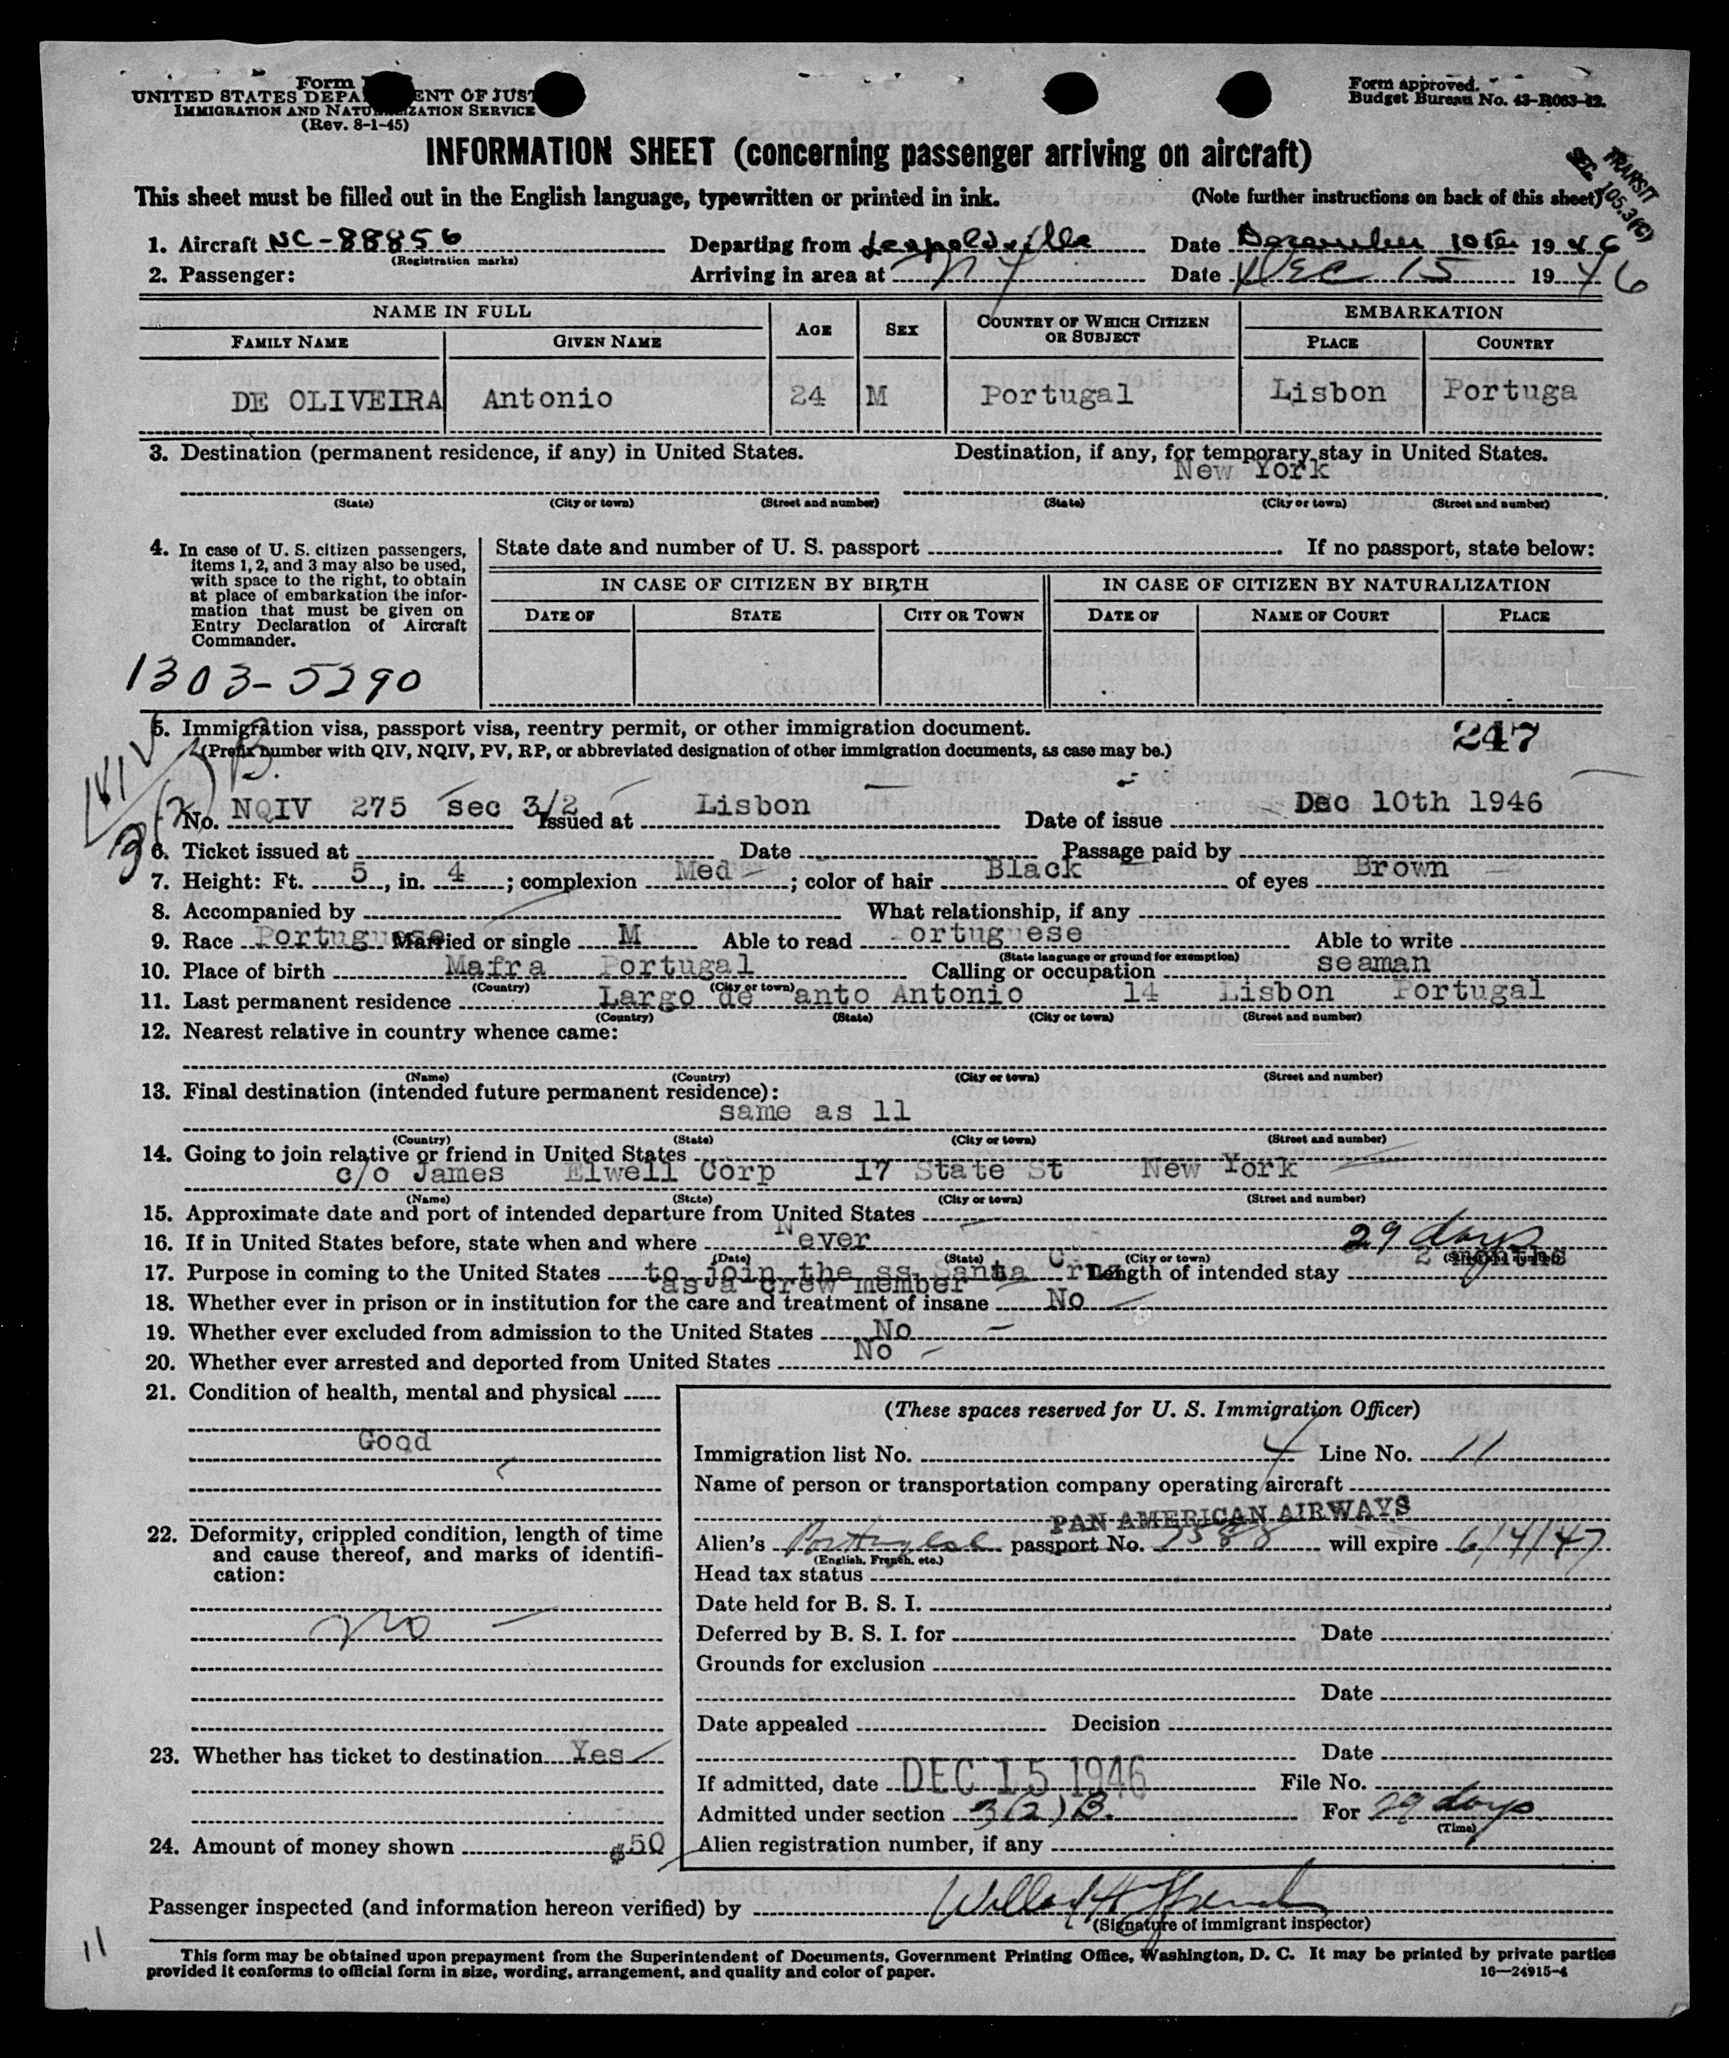 Form
UNITED STATES DEPA ENT OF JUST
IMMIGRATION AND NATURALIZATION SERVICE
(Rev. 8-1-45)
Form approved.
Budget Bureau No. 43-R063-42.
INFORMATION SHEET (concerning passenger arriving on aircraft)
TRANSIT
SEC. 105.3(C)
This sheet must be filled out in the English language, typewritten or printed in ink. (Note further instructions on back of this sheet)
1. Aircraft NC-88856 Departing from Leopoldville Date December 10th 1946
(Registration marks)
2. Passenger: Arriving in area at NY Date DEC 15 1946
NAME IN FULL AGE SEX COUNTRY OF WHICH CITIZEN OR SUBJECT EMBARKATION
FAMILY NAME GIVEN NAME PLACE COUNTRY
DE OLIVEIRA Antonio 24 M Portugal Lisbon Portuga
3. Destination (permanent residence, if any) in United States. Destination, if any, for temporary stay in United States.
New York
(State) (City or town) (Street and number) (State) (City or town) (Street and number)
4. In case of U. S. citizen passengers, items 1, 2, and 3 may also be used, with space to the right, to obtain at place of embarkation the information that must be given on Entry Declaration of Aircraft Commander.
State date and number of U. S. passport If no passport, state below:
IN CASE OF CITIZEN BY BIRTH IN CASE OF CITIZEN BY NATURALIZATION
DATE OF STATE CITY OR TOWN DATE OF NAME OF COURT PLACE
1303-5290
5. Immigration visa, passport visa, reentry permit, or other immigration document. 247
(Prefix number with QIV, NQIV, PV, RP, or abbreviated designation of other immigration documents, as case may be.)
3(2)B.
No. NQIV 275 sec 3/2 Issued at Lisbon Date of issue Dec 10th 1946
6. Ticket issued at Date Passage paid by
7. Height: Ft. 5, in. 4; complexion Med; color of hair Black of eyes Brown
8. Accompanied by What relationship, if any
9. Race Portuguese Married or single M Able to read ortuguese Able to write
(State language or ground for exemption)
10. Place of birth Mafra Portugal Calling or occupation seaman
(Country) (City or town)
11. Last permanent residence Largo de anto Antonio 14 Lisbon Portugal
(Country) (State) (City or town) (Street and number)
12. Nearest relative in country whence came:
(Name) (Country) (City or town) (Street and number)
13. Final destination (intended future permanent residence):
same as 11
(Country) (State) (City or town) (Street and number)
14. Going to join relative or friend in United States
c/o James Elwell Corp 17 State St New York
(Name) (State) (City or town) (Street and number)
15. Approximate date and port of intended departure from United States
16. If in United States before, state when and where Never 29 days
(Date) (State) (City or town) (Street and number)
17. Purpose in coming to the United States to join the ss Santa Cruz Length of intended stay 2 months
as a crew member
18. Whether ever in prison or in institution for the care and treatment of insane No
19. Whether ever excluded from admission to the United States No
20. Whether ever arrested and deported from United States No
21. Condition of health, mental and physical
Good
22. Deformity, crippled condition, length of time and cause thereof, and marks of identification:
no
23. Whether has ticket to destination Yes
24. Amount of money shown $50
(These spaces reserved for U. S. Immigration Officer)
Immigration list No. 4 Line No. 11
Name of person or transportation company operating aircraft
PAN AMERICAN AIRWAYS
Alien's Portuguese passport No. 7588 will expire 6/4/47
(English, French, etc.)
Head tax status
Date held for B. S. I.
Deferred by B. S. I. for Date
Grounds for exclusion
Date
Date appealed Decision
Date
If admitted, date DEC 15 1946 File No.
Admitted under section 3(2)B. For 29 days
(Time)
Alien registration number, if any
Passenger inspected (and information hereon verified) by
(Signature of immigrant inspector)
11
This form may be obtained upon prepayment from the Superintendent of Documents, Government Printing Office, Washington, D. C. It may be printed by private parties
provided it conforms to official form in size, wording, arrangement, and quality and color of paper. 16—24915-4